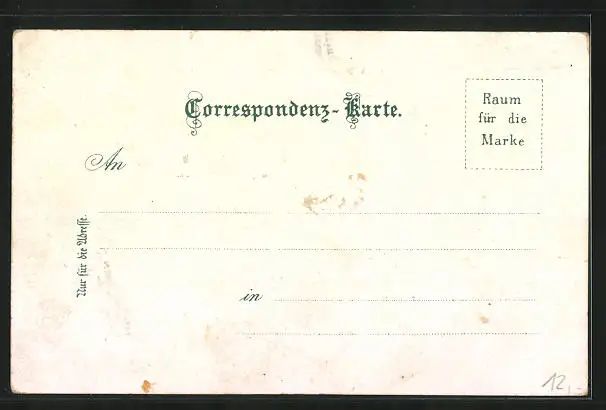 Correspondenz-Karte.
Raum
für die
Marke
An
Nur für die Adresse.
in
12,-